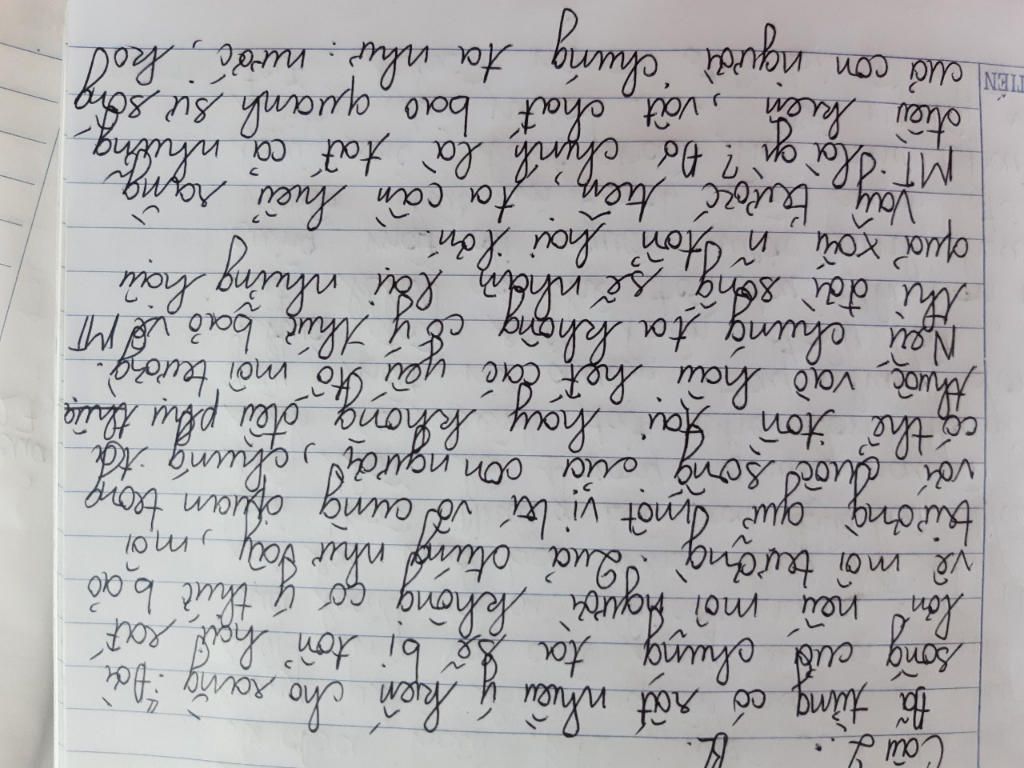 Câu 2:
BL.
Đã từng có rất nhiều ý kiến cho rằng: "Đời
sống của chúng ta sẽ bị tổn hại rất
lớn nếu mỗi người không có ý thức bảo
vệ môi trường". Quả đúng như vậy, môi
trường giữ một vị trí vô cùng quan trọng
với cuộc sống của con người, chúng ta
có thể tồn tại hay không đều phụ thuộc
thuộc vào hầu hết các yếu tố môi trường.
Nếu chúng ta không có ý thức bảo vệ MT
thì đời sống sẽ nhận lại những hậu
quả xấu n tổn hại lớn.
Vậy trước tiên, ta cần hiểu rằng
MT là gì? Đó chính là tất cả những
điều kiện, vật chất bao quanh sự sống
của con người chúng ta như: nước, kod
TIÊN